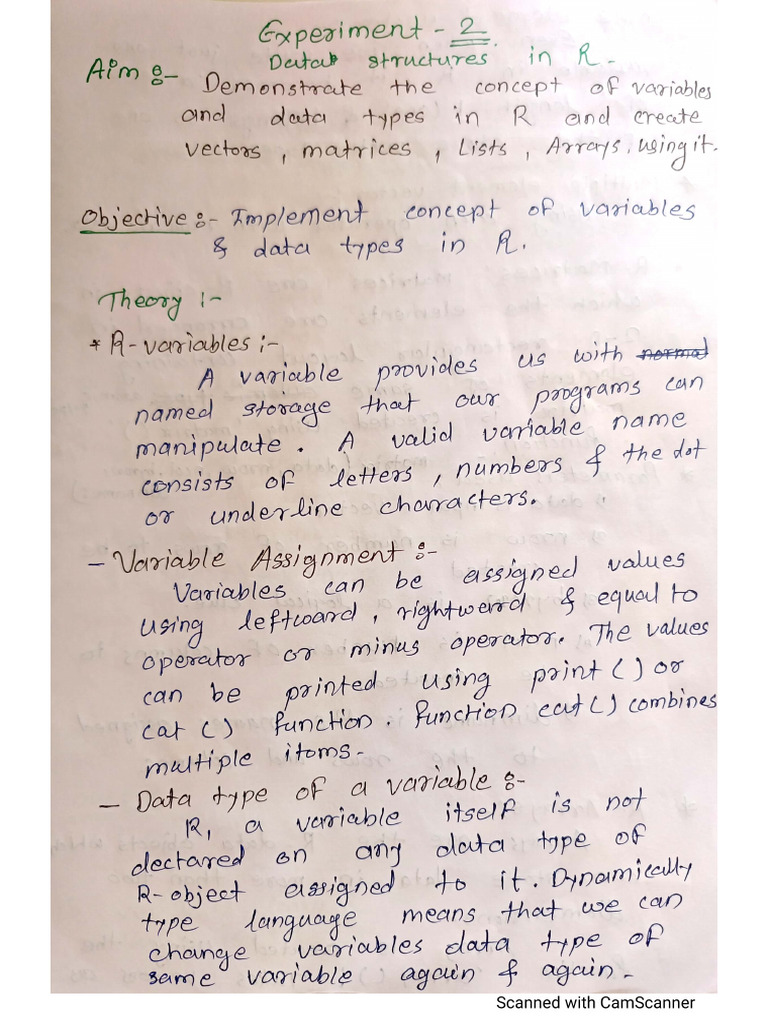 Experiment - 2
Data structures in R -
Aim :- Demonstrate the concept of variables
and data types in R and create
vectors, matrices, Lists, Arrays, using it.
Objective :- Implement concept of variables
& data types in R.
Theory :-
* R-variables :-
A variable provides us with normal
named storage that our programs can
manipulate. A valid variable name
consists of letters, numbers & the dot
or underline characters.
- Variable Assignment :-
Variables can be assigned values
using leftward, rightward & equal to
operator or minus operator. The values
can be printed using print () or
cat () function. function cat () combines
multiple itoms-
- Data type of a variable :-
R, a variable itself is not
declared on any data type of
R-object assigned to it. Dynamically
type language means that we can
change variables data type of
same variable again & again -
Scanned with CamScanner